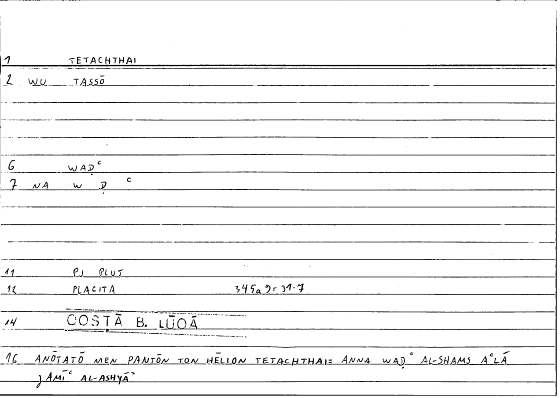 1 TETACHTHAI
2 WU TASSŌ
6 WAḌᶜ
7 NA W Ḍ ᶜ
11 PJ PLUT
12 PLACITA 345a9 = 31.7
14 QOSṬĀ B. LŪQĀ
16 ANŌTATŌ MEN PANTŌN TON HĒLION TETACHTHAI= ANNA WAḌᶜ AL-SHAMS AᶜLĀ
JAMĪᶜ AL-ASHYĀʾ